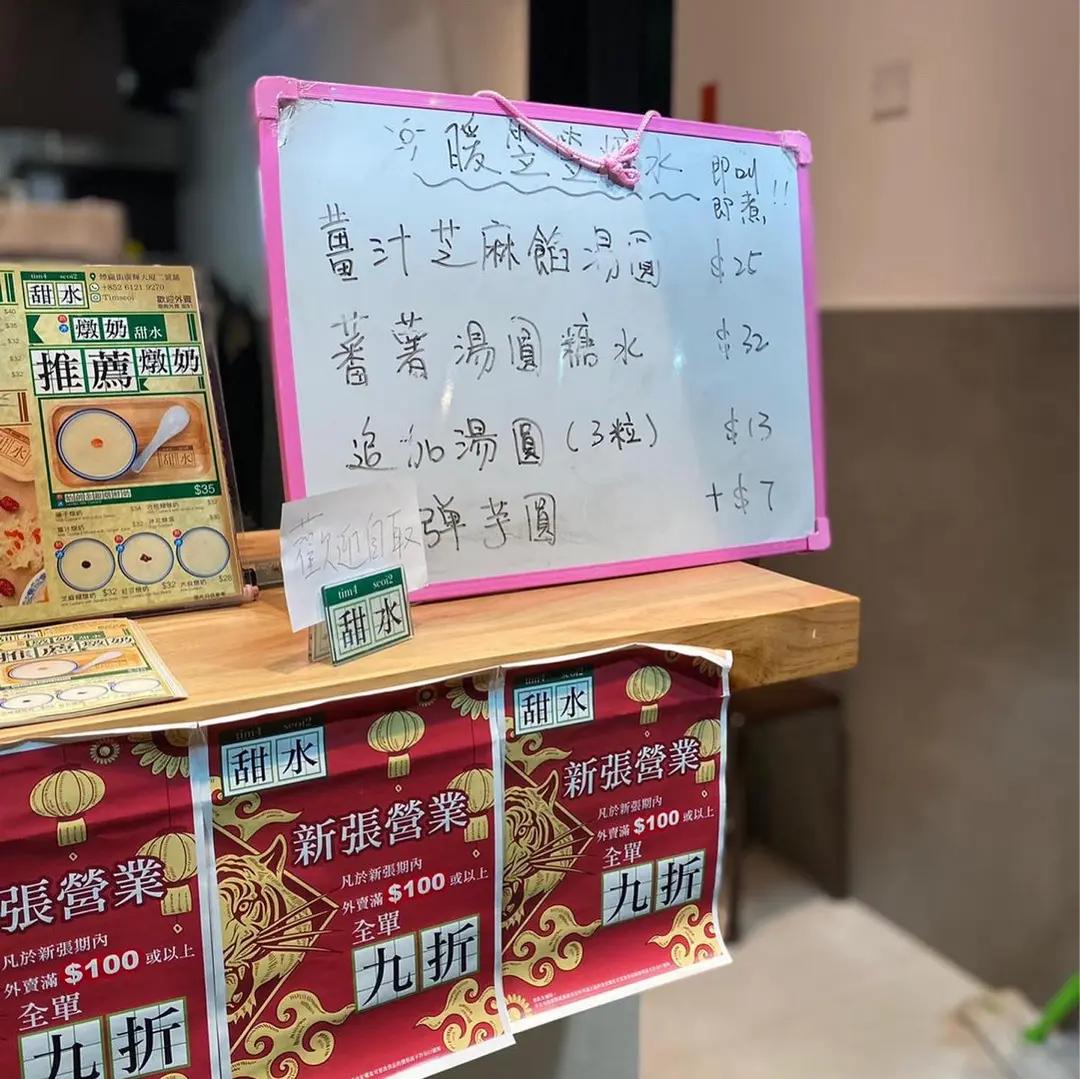 暖笠笠糖水
即叫
即煮!!
薑汁芝麻餡湯圓 $25
蕃薯湯圓糖水 $32
追加湯圓(3粒) $13
弹芋圓 +$7
歡迎自取
tim4 seoi2
甜水
tim4 seoi2
甜水
+852 6121 9270
Timseoi
歡迎外賣
燉奶 甜水
推薦燉奶
$35
$34
$32
$32
芝麻糊燉奶 $32
紅豆燉奶 $32
$28
$40
$35
$32
$32
$32
推薦燉奶
張營業
凡於新張期內
外賣滿 $100 或以上
全單
九折
tim4 seoi2
甜水
新張營業
凡於新張期內
外賣滿 $100 或以上
全單
九折
tim4 seoi2
甜水
新張營業
凡於新張期內
外賣滿 $100 或以上
全單
九折